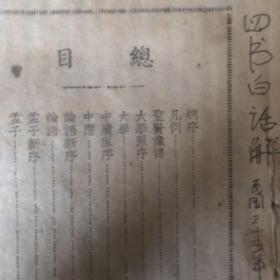 總目
總序
凡例
聖賢像傳
大學原序
大學
中庸原序
中庸
論語新序
論語
孟子新序
孟子
四书白话解 國三十五年